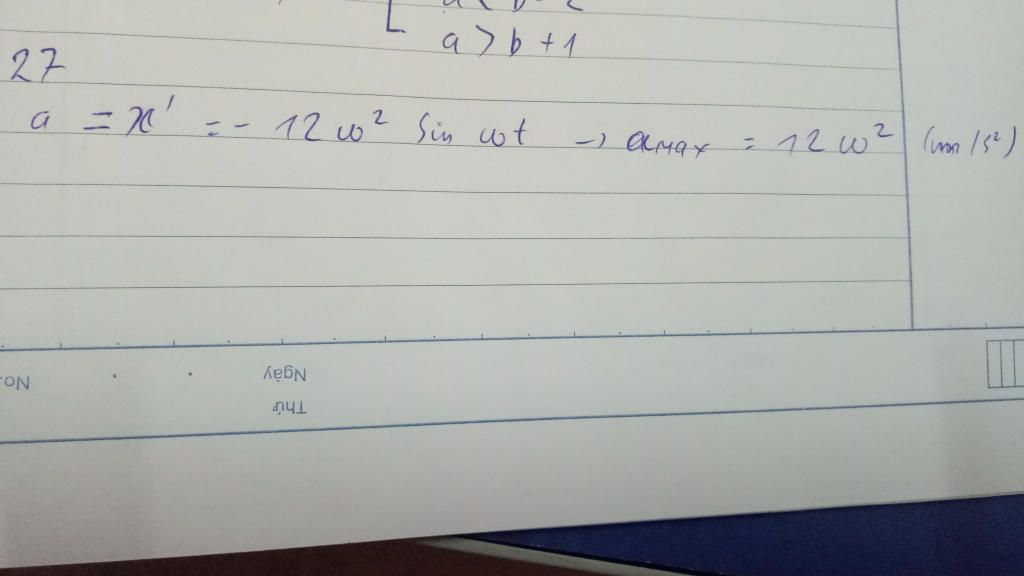 a > b + 1
27
a = x' = - 12 ω² sin ωt → a_MAX = 12 ω² (cm/s²)
Ngày
No.
Thứ